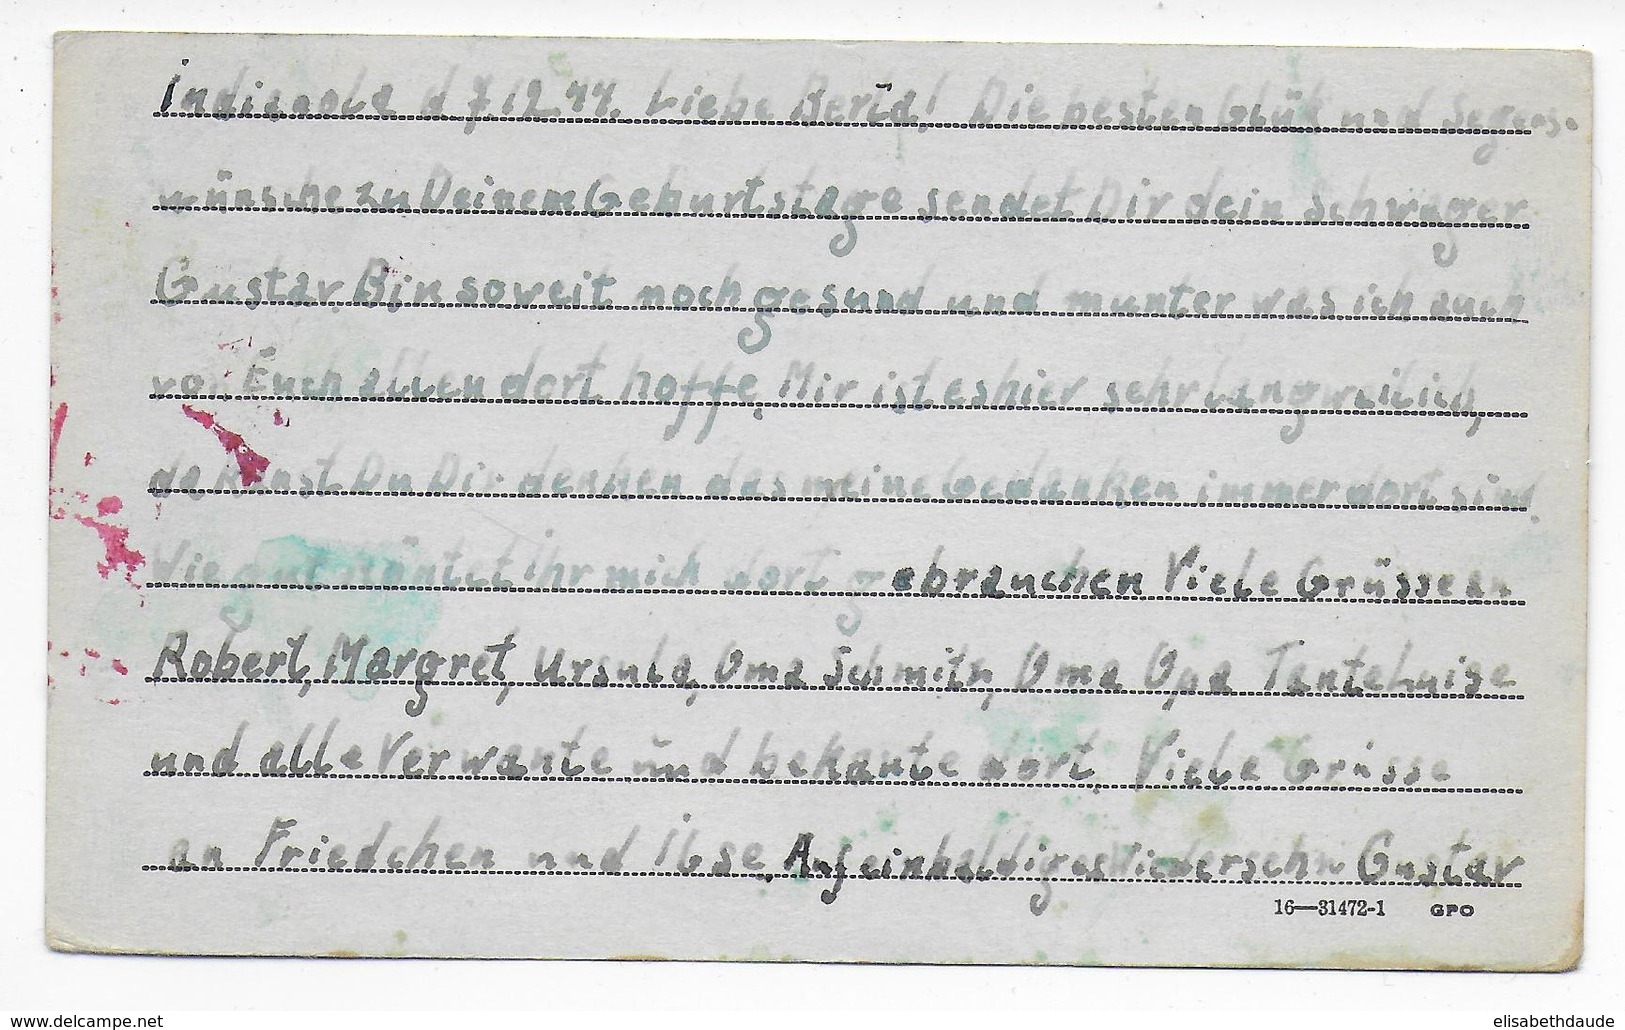 Indianola d 7.12.44. Liebe Berta! Die besten Glük und Segens-
wünsche zu Deinem Geburtstage sendet Dir dein Schwager
Gustav. Bin soweit noch gesund und munter was ich auch
von Euch allen dort hoffe. Mir ist es hier sehr langweilich,
da kanst Du Dir denken das meine Gedanken immer dort sind.
Wie gut köntet ihr mich dort gebrauchen Viele Grüsse an
Robert, Margret, Ursula, Oma Schmitz, Oma Opa Tante Luise
und alle Verwante und bekante dort. Viele Grüsse
an Friedchen und Ilse. Auf ein baldiges Wiedersehn Gustav
16—31472-1 GPO
delcampe.net
elisabethdaude